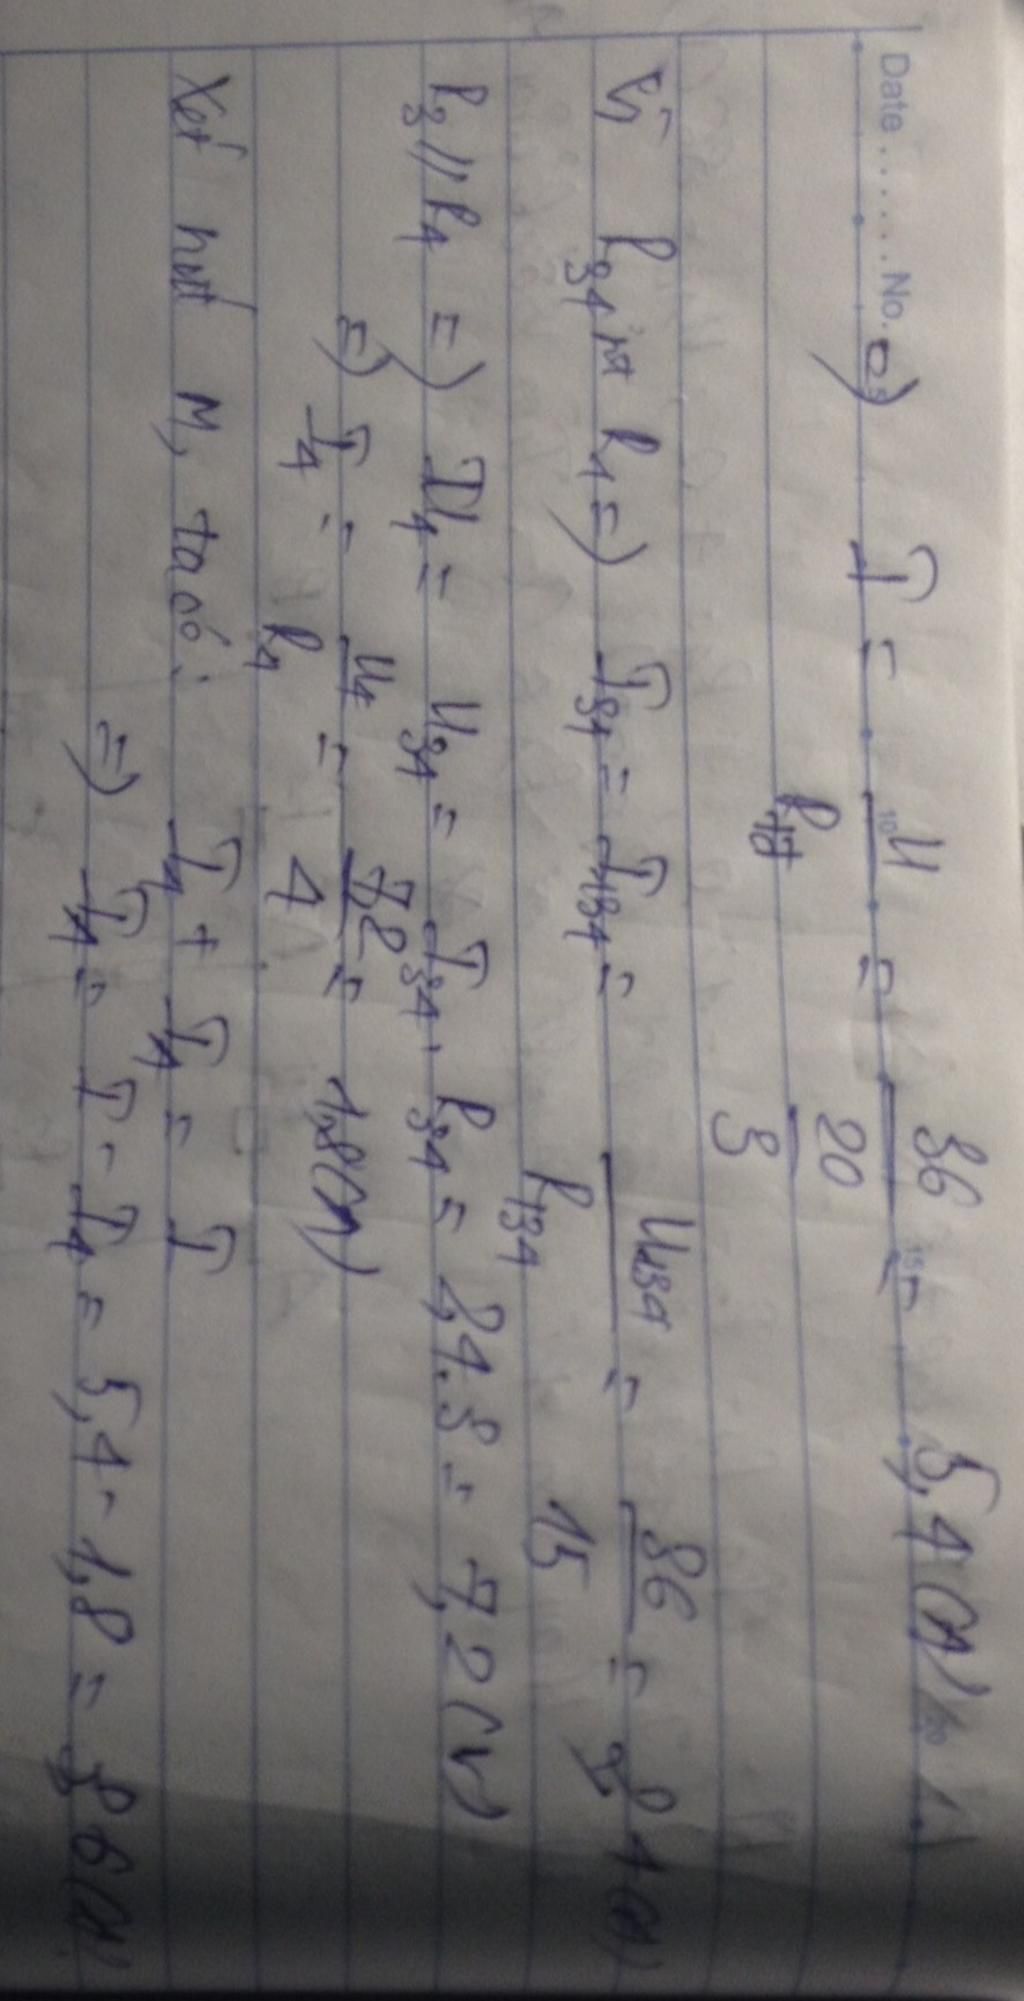 Date . . . . . . No.
c) I = U/Rtđ = 36/(20/3) = 5,4 (A)
Vì R34 nt R1 => I34 = I134 = U134/R134 = 36/15 = 2,4 (A)
R3 // R4 => U4 = U34 = I34 . R34 = 2,4.3 = 7,2 (V)
=> I4 = U4/R4 = 7,2/4 = 1,8 (A)
Xét nút M, ta có: I4 + IA = I
=> IA = I - I4 = 5,4 - 1,8 = 3,6 (A)